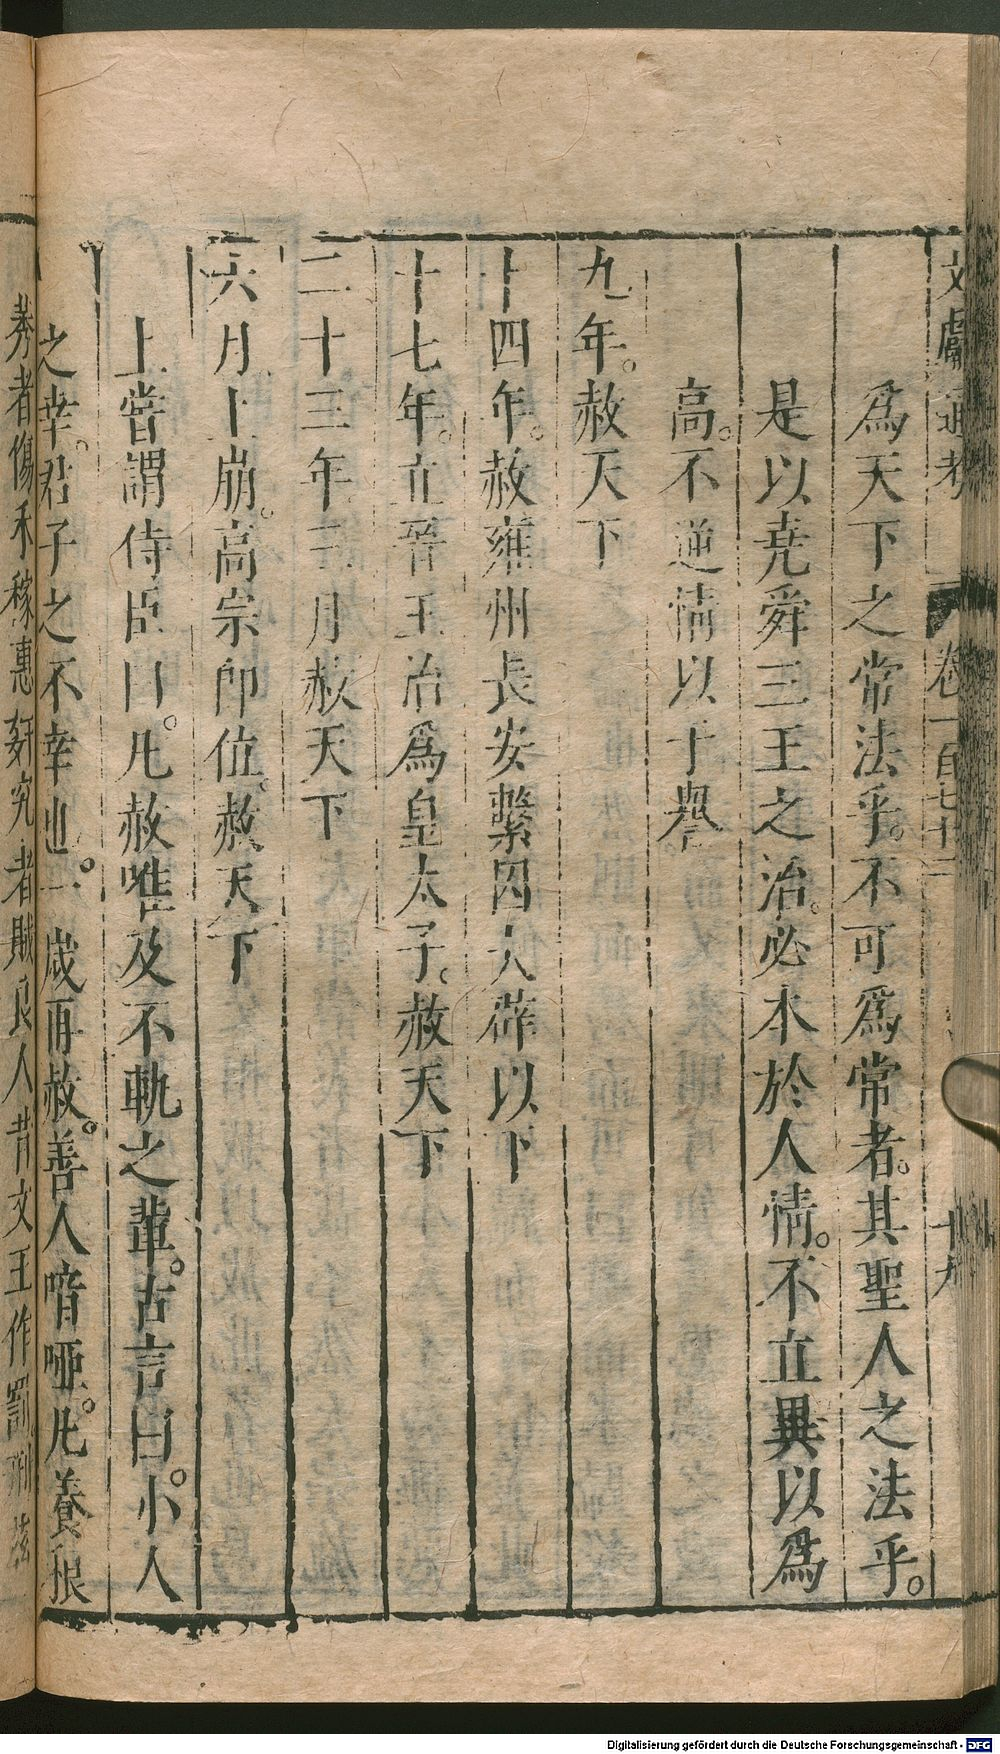 文獻通考 卷一百七十二 十九
爲天下之常法乎。不可爲常者。其聖人之法乎。
是以堯舜三王之治。必本於人情。不立異以爲
高。不逆情以干譽
九年。赦天下
十四年。赦雍州長安繫囚大辟以下
十七年。立晉王治爲皇太子。赦天下
二十三年三月赦天下
六月上崩。高宗卽位。赦天下
上嘗謂侍臣曰。凡赦唯及不軌之輩。古言曰。小人
之幸。君子之不幸也。一歲再赦。善人喑啞。凡養稂
莠者傷禾稼惠姦宄者賊良人昔文王作罰刑茲
Digitalisierung gefördert durch die Deutsche Forschungsgemeinschaft - DFG